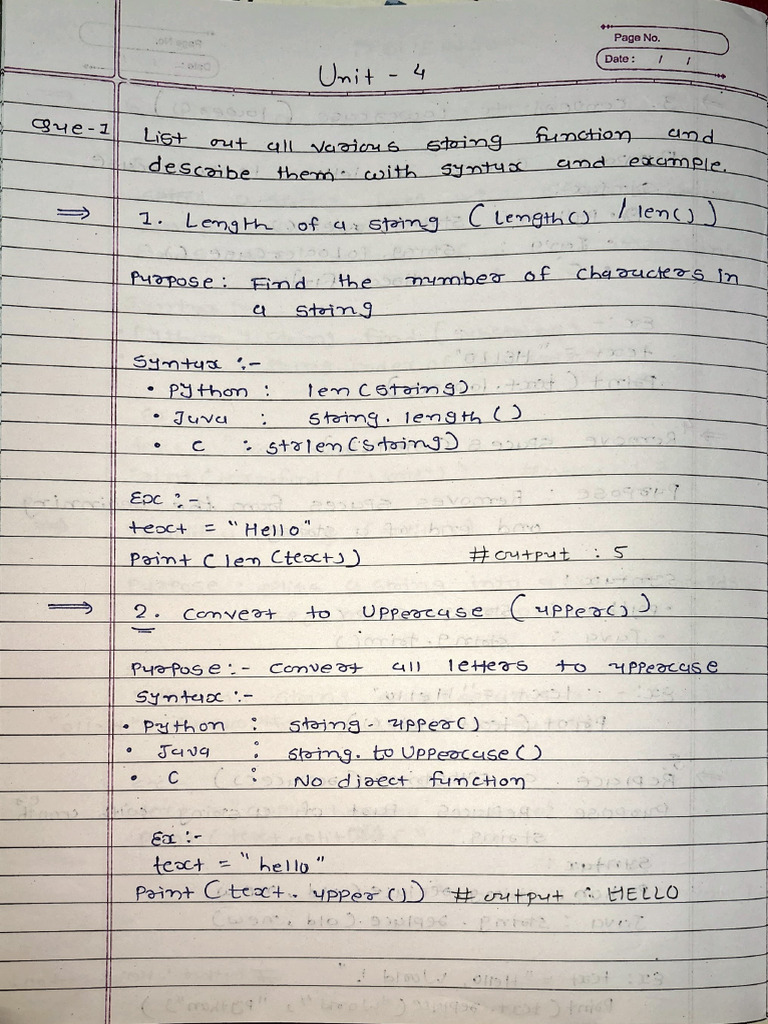 Page No.
Date : / /
Unit - 4
Que-1 List out all various string function and
describe them with syntax and example.
⇒ 1. Length of a string (length() / len())
Purpose : Find the number of characters in
a string
Syntax :-
• Python : len (string)
• Java : string. length ()
• C : strlen(string)
Ex :-
text = "Hello"
Print (len (text)) # output : 5
⇒ 2. Convert to Uppercase (upper())
Purpose :- Convert all letters to uppercase
Syntax :-
• Python : string. upper()
• Java : string. to Uppercase ()
• C : No direct function
Ex :-
text = "hello"
Print (text. upper ()) # output : HELLO